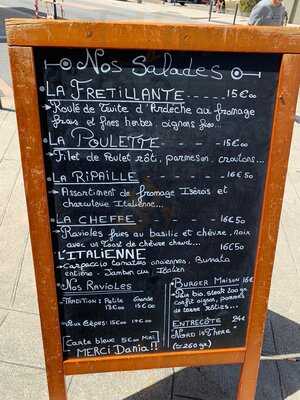 Nos Salades
LA FRETILLANTE 15€00
Roulé de Truite d'Ardèche au fromage
frais et fines herbes, oignons
LA POULETTE 15€00
Filet de Poulet rôti, parmesan, croutons...
LA RIPAILLE 16€50
Assortiment de fromage Isérois et
charcuterie Italienne...
LA CHEFFE 16€50
Ravioles frius au basilic et chèvre, noix
avec un Toast de chèvre chaud...
L'ITALIENNE 16€50
Carpaccio tomates anciennes, Burrata
entière, Jambon cru Italien
Nos Ravioles
TRADITION: Petite Grande
13€00 15€00
Aux Cèpes: 15€00 17€00
Carte bleue 5€00 Mini
MERCI Dania!!
BURGER MAISON 16€
Pain bio, steak 200gr
confit oignon, pommes
de terre rôties...
ENTRECÔTE 24€
"NORD ISÈRE"
(≈260gr)